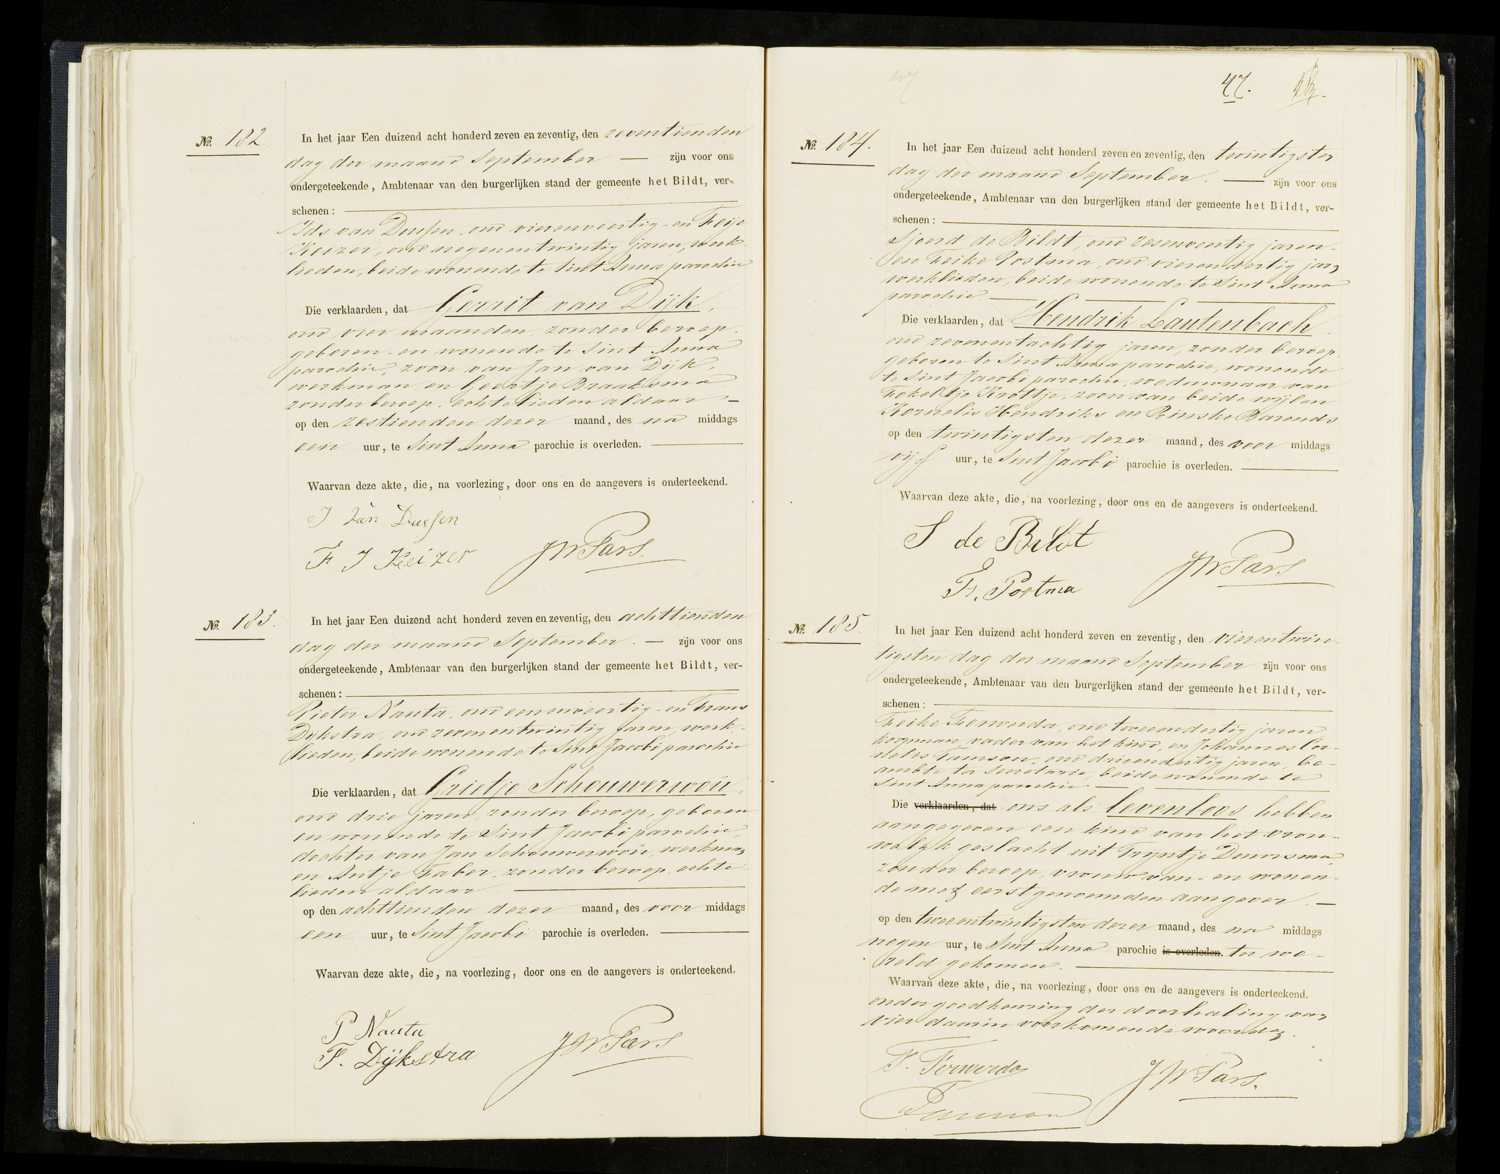 No. 182
In het jaar Een duizend acht honderd zeven en zeventig, den zeventienden
dag der maand September — zijn voor ons
ondergeteekende, Ambtenaar van den burgerlijken stand der gemeente het Bildt, ver-
schenen:
Ids van Dussen, oud vierenveertig en Feije
Keizer, oud negenentwintig jaren, werk-
lieden, beide wonende te Sint Anna parochie
Die verklaarden, dat Gerrit van Dijk,
oud vier maanden, zonder beroep,
geboren en wonende te Sint Anna
parochie, zoon van Jan van Dijk,
werkman en Geertje Braaksma
zonder beroep, echtelieden aldaar —
op den zestienden dezer maand, des na middags
een uur, te Sint Anna parochie is overleden.
Waarvan deze akte, die, na voorlezing, door ons en de aangevers is onderteekend.
I van Dussen
F I Keizer JW Pars.
No. 183.
In het jaar Een duizend acht honderd zeven en zeventig, den achttienden
dag der maand September. — zijn voor ons
ondergeteekende, Ambtenaar van den burgerlijken stand der gemeente het Bildt, ver-
schenen:
Pieter Nauta, oud eenenveertig en Frans
Dijkstra, oud zevenentwintig jaren, werk-
lieden, beide wonende te Sint Jacobi parochie
Die verklaarden, dat Grietje Schouwerwou,
oud drie jaren, zonder beroep, geboren
en wonende te Sint Jacobi parochie,
dochter van Jan Schouwerwou, werkman
en Antje Faber, zonder beroep, echte-
lieden aldaar
op den achttienden dezer maand, des voor middags
een uur, te Sint Jacobi parochie is overleden.
Waarvan deze akte, die, na voorlezing, door ons en de aangevers is onderteekend.
P Nauta
F. Dijkstra JW Pars
47.
No. 184.
In het jaar Een duizend acht honderd zeven en zeventig, den twintigsten
dag der maand September. — zijn voor ons
ondergeteekende, Ambtenaar van den burgerlijken stand der gemeente het Bildt, ver-
schenen:
Sjoerd de Bildt, oud zesenveertig jaren
en Feike Postma, oud vierendertig jaren
werklieden, beide wonende te Sint Anna
parochie
Die verklaarden, dat Hendrik Lautenbach,
oud zevenentachtig jaren, zonder beroep,
geboren te Sint Anna parochie, wonende
te Sint Jacobi parochie, weduwnaar van
Fokeltje Krottje, zoon van beide wijlen
Kornelis Hendriks en Rinske Barends
op den twintigsten dezer maand, des voor middags
vijf uur, te Sint Jacobi parochie is overleden.
Waarvan deze akte, die, na voorlezing, door ons en de aangevers is onderteekend.
S de Bildt
F. Postma JW Pars
No. 185.
In het jaar Een duizend acht honderd zeven en zeventig, den vierentwin-
tigsten dag der maand September zijn voor ons
ondergeteekende, Ambtenaar van den burgerlijken stand der gemeente het Bildt, ver-
schenen:
Feike Ferwerda, oud tweeendertig jaren
koopman, vader van het kind, en Johannes Cor-
nelis Tamson, oud drieendertig jaren, be-
ambte ter secretarie, beide wonende te
Sint Anna parochie —
Die verklaarden, dat ons als levenloos hebben
aangegeven een kind van het vrou-
welijk geslacht uit Trijntje Douwsma
zonder beroep, vrouw van- en wonen-
de met eerstgenoemden aangever. —
op den tweeentwintigsten dezer maand, des na middags
negen uur, te Sint Anna parochie is overleden. ter we-
reld gekomen.
Waarvan deze akte, die, na voorlezing, door ons en de aangevers is onderteekend.
onder goedkeuring der doorhaling van
vier daarin voorkomende woorden.
F. Ferwerda JW Pars.
Tamson